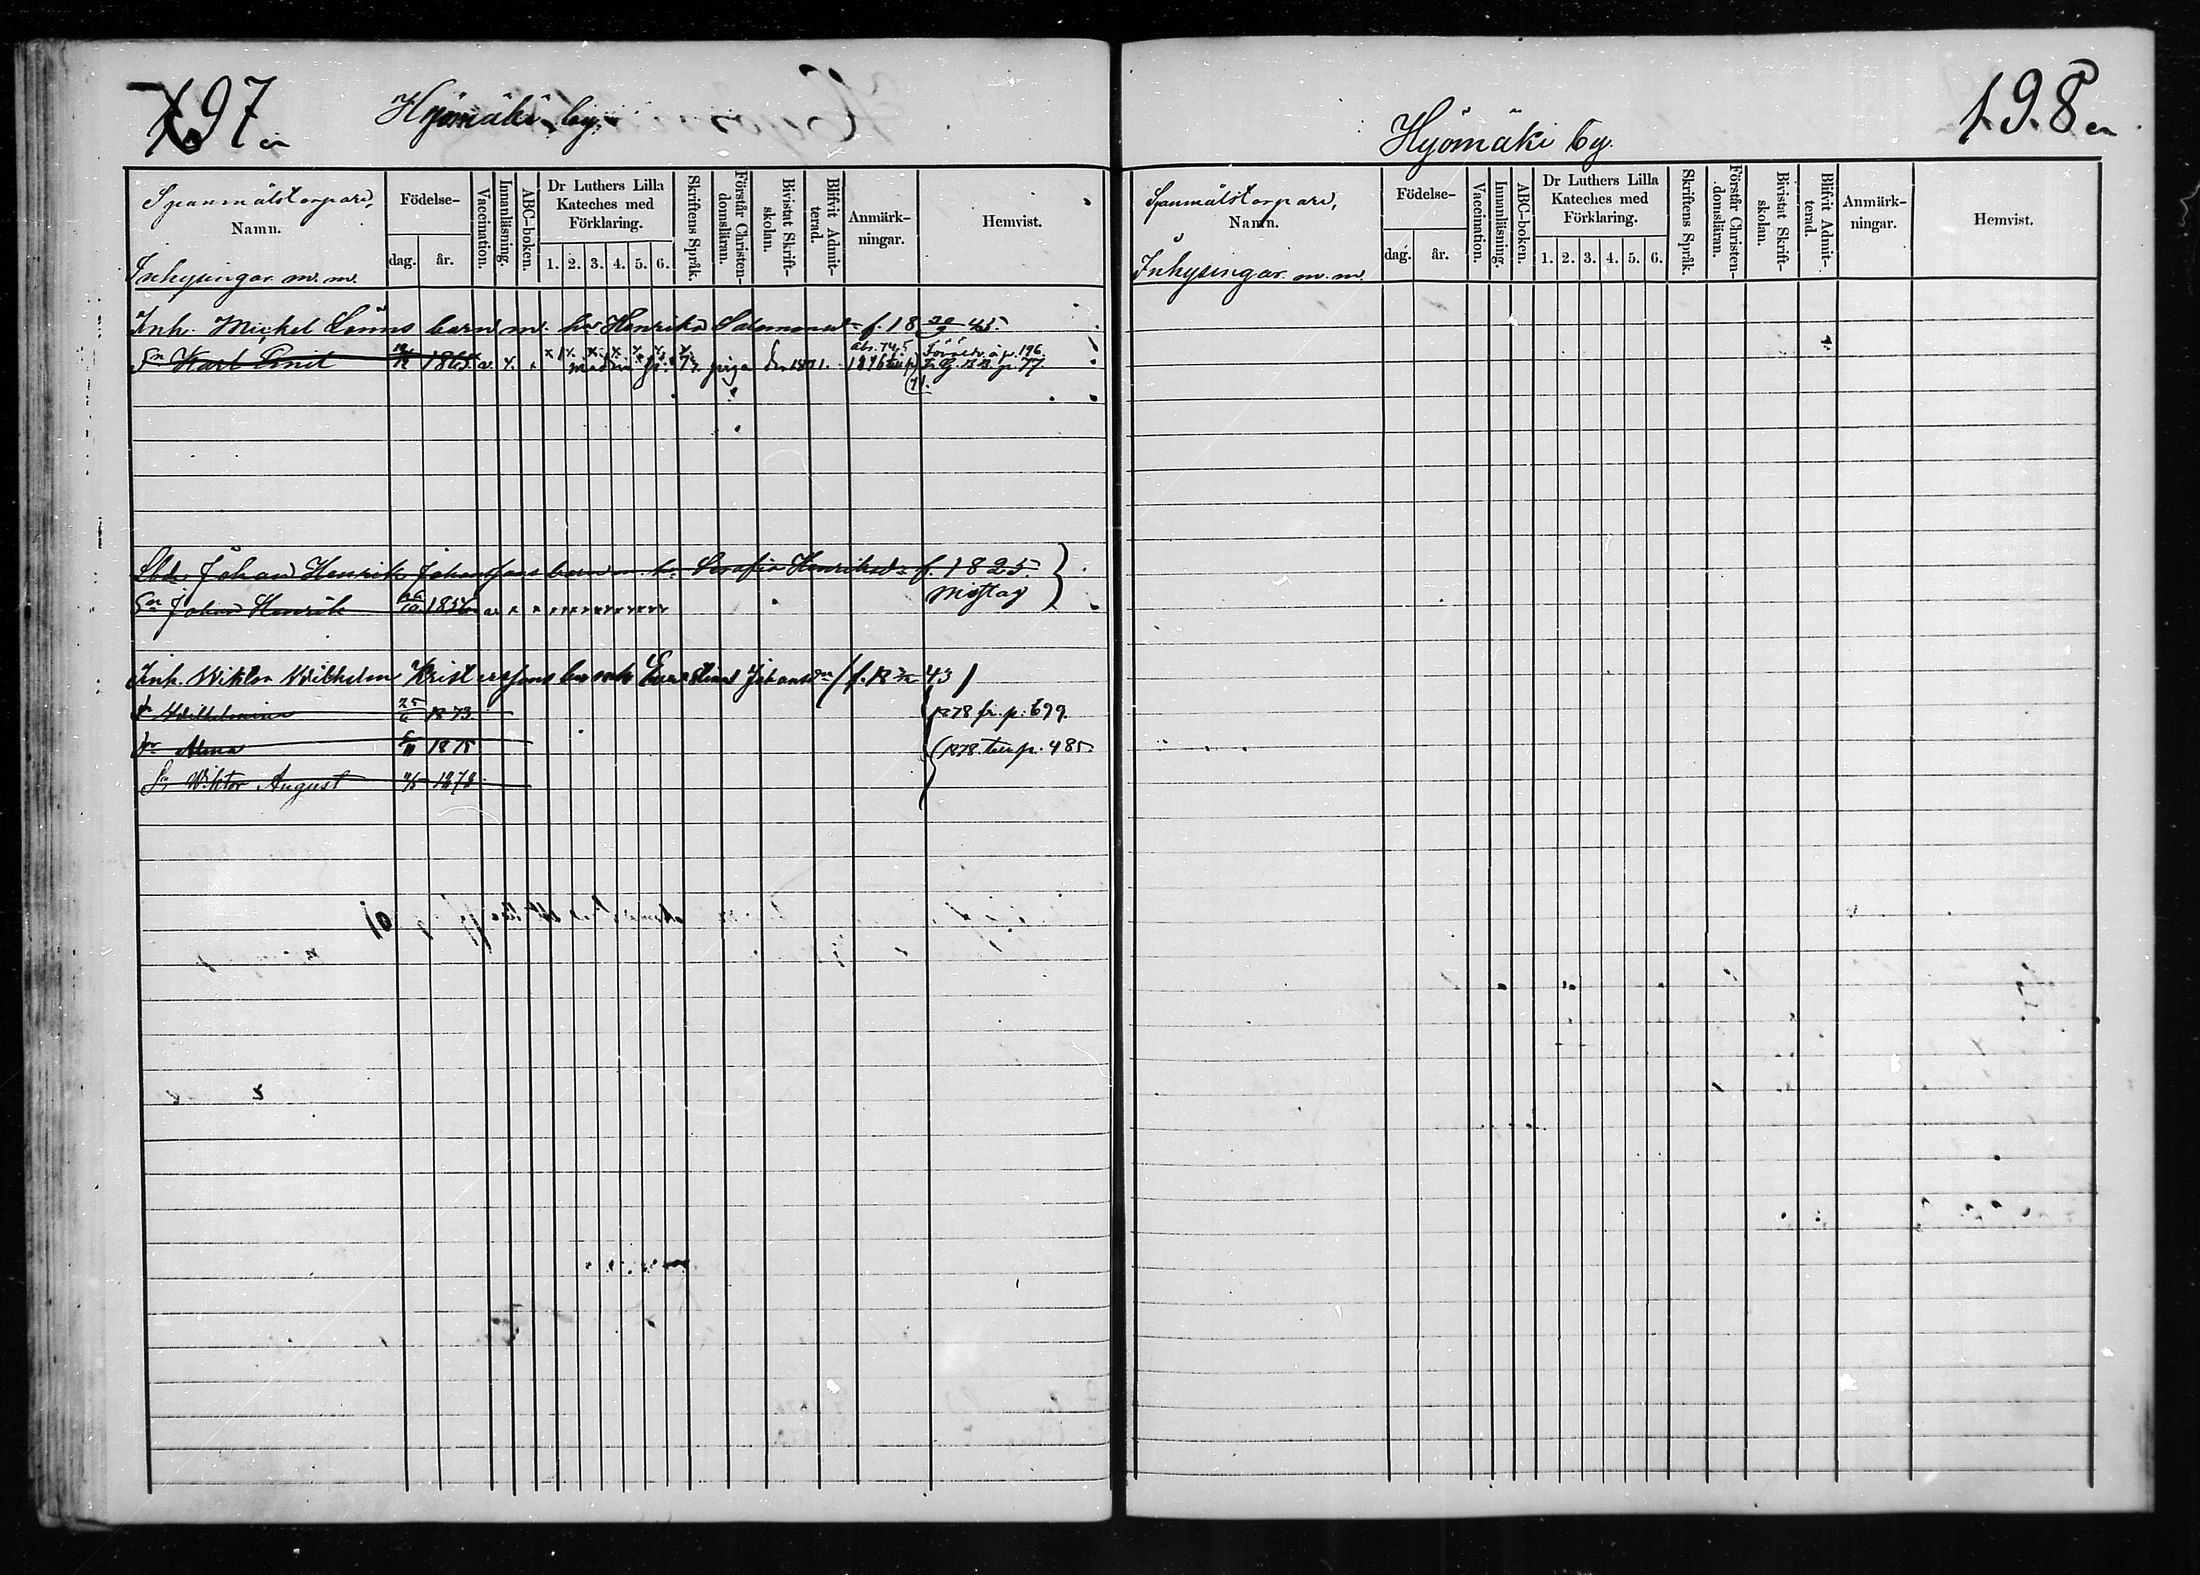 197 a
Hyömäki by.
Spanmålstorpare,
Namn.
Inhysingar m. m.
Födelse-
dag. år.
Vaccination.
Innanläsning.
ABC-boken.
Dr Luthers Lilla Kateches med Förklaring.
1. 2. 3. 4. 5. 6.
Skriftens Språk.
Förstår Christendomsläran.
Bivistat Skriftskolan.
Blifvit Admitterad.
Anmärkningar.
Hemvist.
Inh. Mickel barn m. hu Henrika Salomonsdr f. 18 45.
Sn Karl Emil 1865 abs. 74.5 Föräldr. å p. 196.
piga 1871. 1876 p. 77.
Johan Henrik Johansons barn m. hu Serafia Henriksdr f. 1825.
Sn Johan Henrik 1854 Misstag
Inh. Wiktor Wilhelm Kristerssons barn m h Johansdr (f. 18 43)
Dr Wilhelmina 25/6 1873 1878 fr. p. 699.
Dr Alma 1875 1878 till p. 485.
Sn Wiktor August 1878
198 a
Hyömäki by.
Spanmålstorpare,
Namn.
Inhysingar m. m.
Födelse-
dag. år.
Vaccination.
Innanläsning.
ABC-boken.
Dr Luthers Lilla Kateches med Förklaring.
1. 2. 3. 4. 5. 6.
Skriftens Språk.
Förstår Christendomsläran.
Bivistat Skriftskolan.
Blifvit Admitterad.
Anmärkningar.
Hemvist.